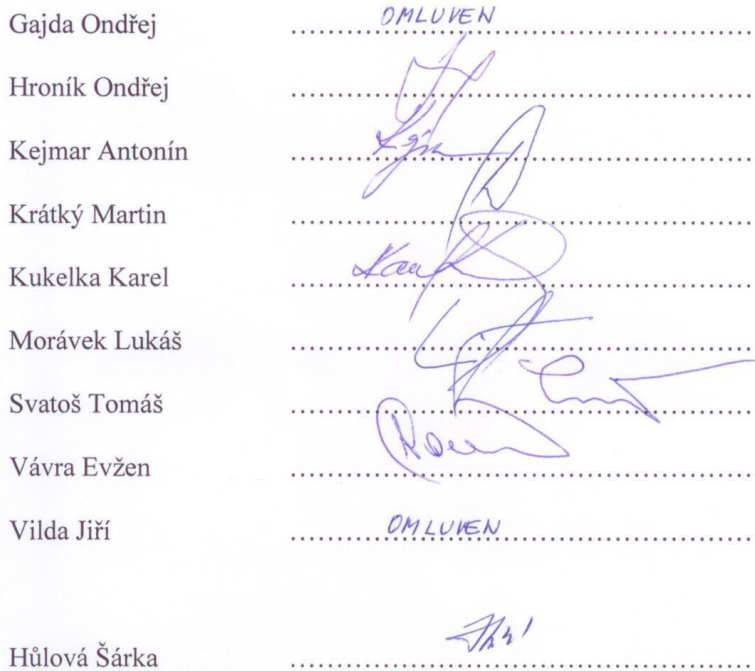 Gajda Ondřej ........ OMLUVEN
Hroník Ondřej ........
Kejmar Antonín ........
Krátký Martin ........
Kukelka Karel ........
Morávek Lukáš ........
Svatoš Tomáš ........
Vávra Evžen ........
Vilda Jiří ........ OMLUVEN
Hůlová Šárka ........